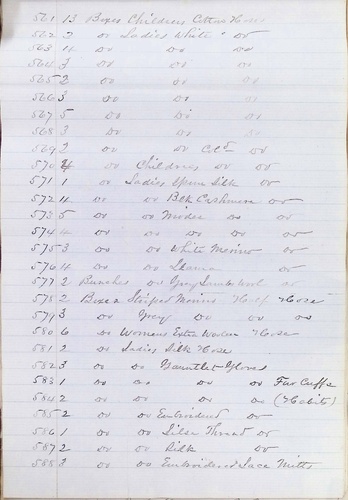 561 13 Boxes Childrens Cotton Hose
562 2 do Ladies White do
563 4 do do do
564 3 do do do
565 2 do do do
566 3 do do do
567 5 do do do
568 3 do do do
569 2 do do Col'd do
570 4 do Childrens do do
571 1 do Ladies Spun Silk do
572 4 do do Blk Cashmere do
573 5 do do Modes do do
574 4 do do do do do
575 3 do do White Merino do
576 4 do do Llama do
577 2 Bunches do Gray Lambs Wool do
578 2 Boxes Striped Merino Half Hose
579 3 do Grey do do do
580 6 do Womens Extra Woolen Hose
581 2 do Ladies Silk Hose
582 3 do do Gauntlet Gloves
583 1 do do do do Fur Cuffs
584 2 do do do do (Habits)
585 2 do do Embroidered do
586 1 do do Lisle Thread do
587 2 do do Silk do
588 3 do do Embroidered Lace Mitts